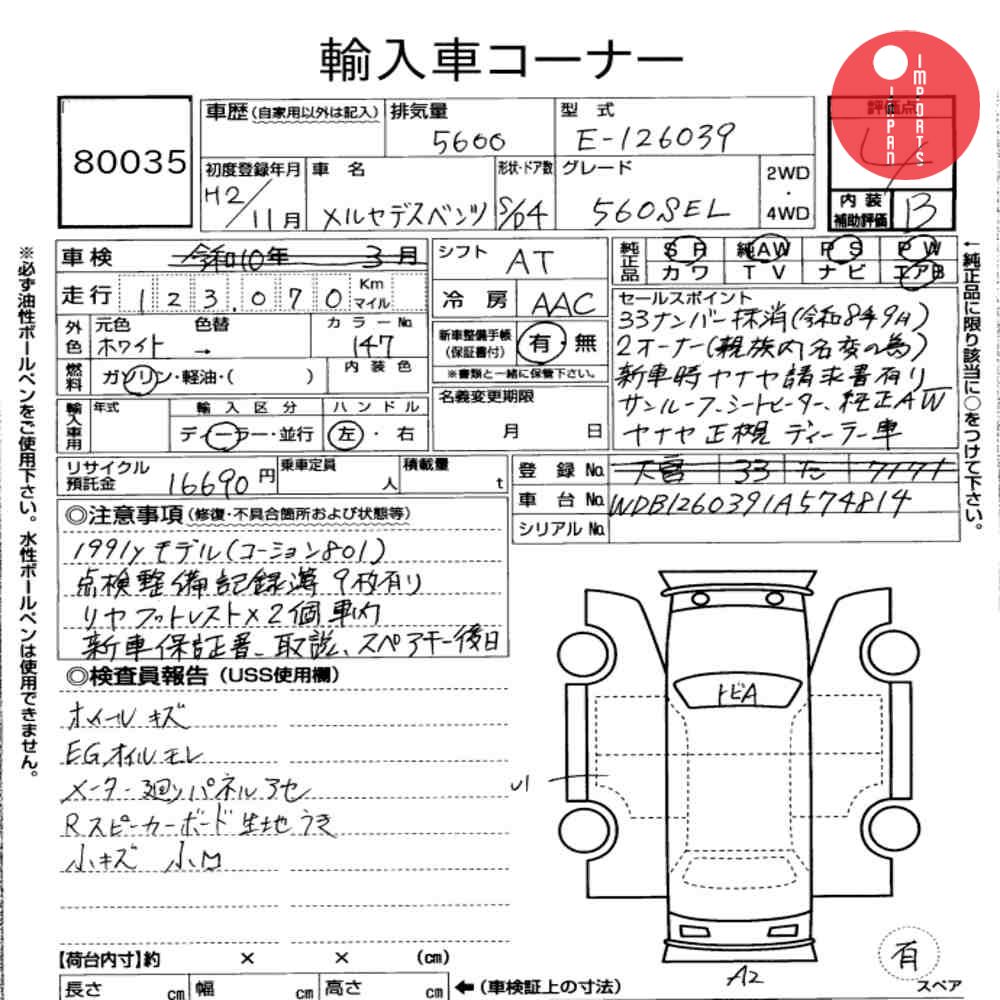 輸入車コーナー
IMPORTS
JAPAN
80035
車歴(自家用以外は記入)
排気量
5600
型 式
E-126039
評価点
4
初度登録年月
H2/11月
車 名
メルセデスベンツ
形状・ドア数
S/D4
グレード
560SEL
2WD
・
4WD
内 装
補助評価
B
※必ず油性ボールペンをご使用下さい。水性ボールペンは使用できません。
車検
令和10年 3月
シフト
AT
純正品
SR 純AW PS PW
カワ TV ナビ エアB
←純正品に限り該当に○をつけて下さい。
走行
123,070
Km
マイル
冷 房
AAC
セールスポイント
33ナンバー抹消(令和8年9月)
2オーナー(親族内名変の為)
新車時ヤナセ請求書有り
サンルーフ、シートヒーター、純正AW
ヤナセ正規ディーラー車
外色
元色 色替
ホワイト →
カラーNo.
147
新車整備手帳
(保証書付)
有・無
※書類と一緒に保管下さい。
燃料
ガソリン・軽油・( )
内装色
名義変更期限
月 日
輸入車用
年式
輸入区分
ディーラー・並行
ハンドル
左・右
リサイクル
預託金
16690円
乗車定員
人
積載量
t
登 録 No.
大宮 33 た 7171
車 台 No.
WDB1260391A574814
シリアル No.
◎注意事項(修復・不具合箇所および状態等)
1991yモデル(コーション801)
点検整備記録簿 9枚有り
リヤフットレスト×2個車内
新車保証書、取説、スペアキー後日
◎検査員報告(USS使用欄)
ホイールキズ
EGオイルモレ
メーター廻リパネルアセ
Rスピーカーボード生地うき
小キズ 小凹
トビA
A2
有
スペア
【荷台内寸】約 × × (cm)
長さ cm
幅 cm
高さ cm
←(車検証上の寸法)